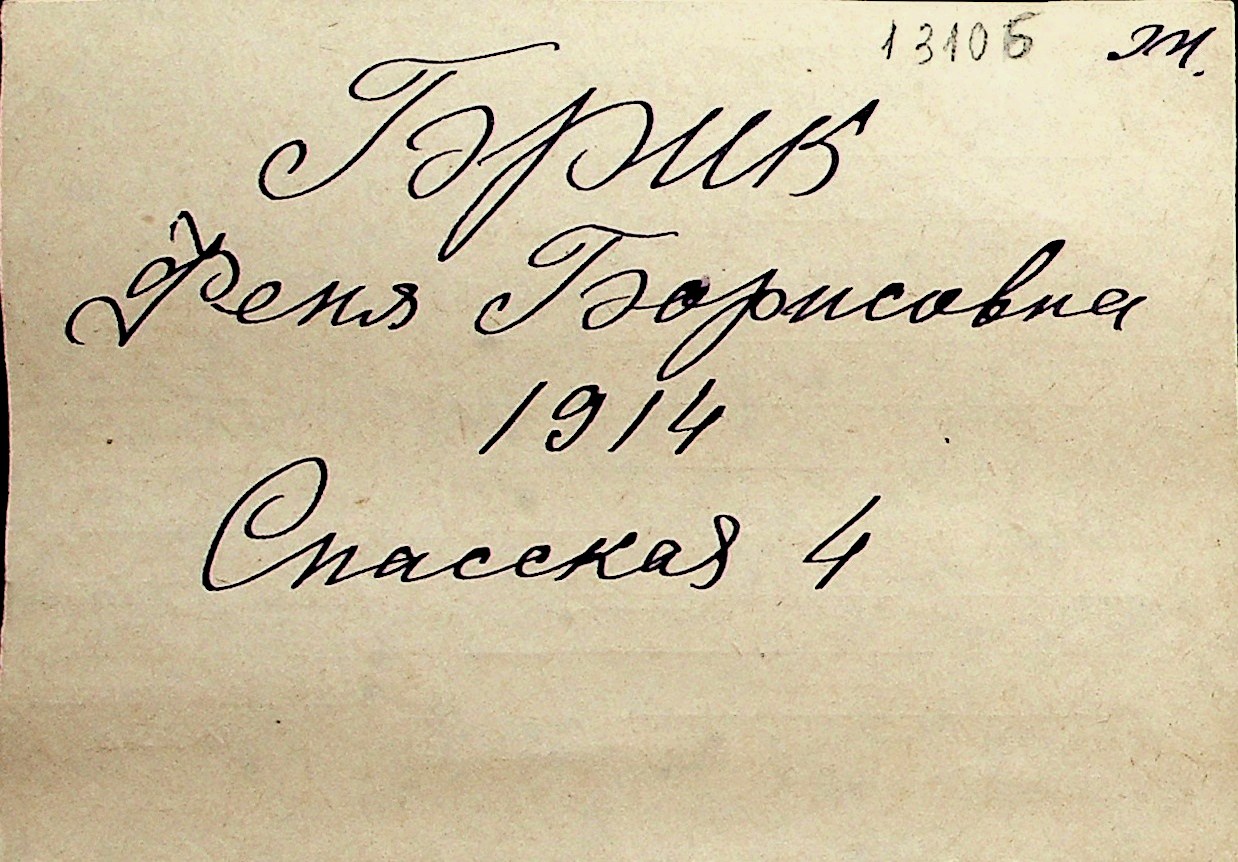 13106 ж.
Брик
Феня Борисовна
1914
Спасская 4